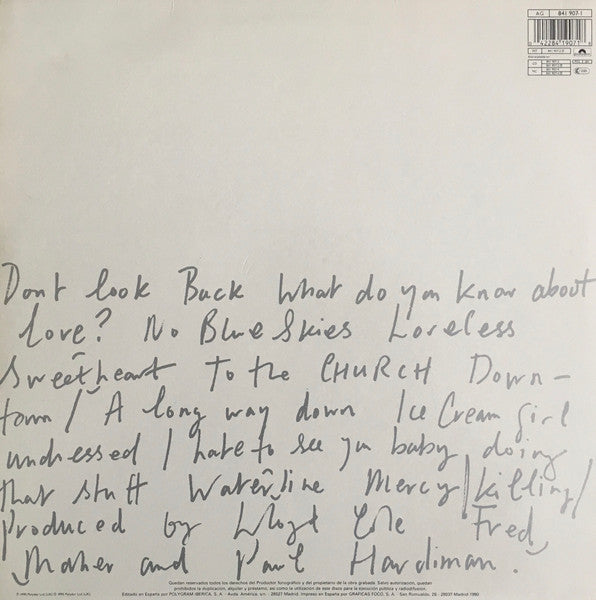 AG 841 907-1
0 42284 19071
Dont look Back What do you know about
love? No Blue Skies Loveless
Sweetheart To the CHURCH Down-
town / A long way down Ice Cream girl
undressed I hate to see you baby doing
that stuff Waterline Mercy / killing /
Produced by Lloyd Cole Fred
Maher and Paul Hardiman.
Quedan reservados todos los derechos del Productor fonográfico y del propietario de la obra grabada. Salvo autorización, quedan
prohibidos la duplicación, alquiler y préstamo, así como la utilización de este disco para la ejecución pública y radiodifusión.
Editado en España por POLYGRAM IBERICA, S. A. Avda. América, s/n. 28027 Madrid. Impreso en España por GRAFICAS FOCO, S. A. San Romualdo, 26 29037 Madrid 1990